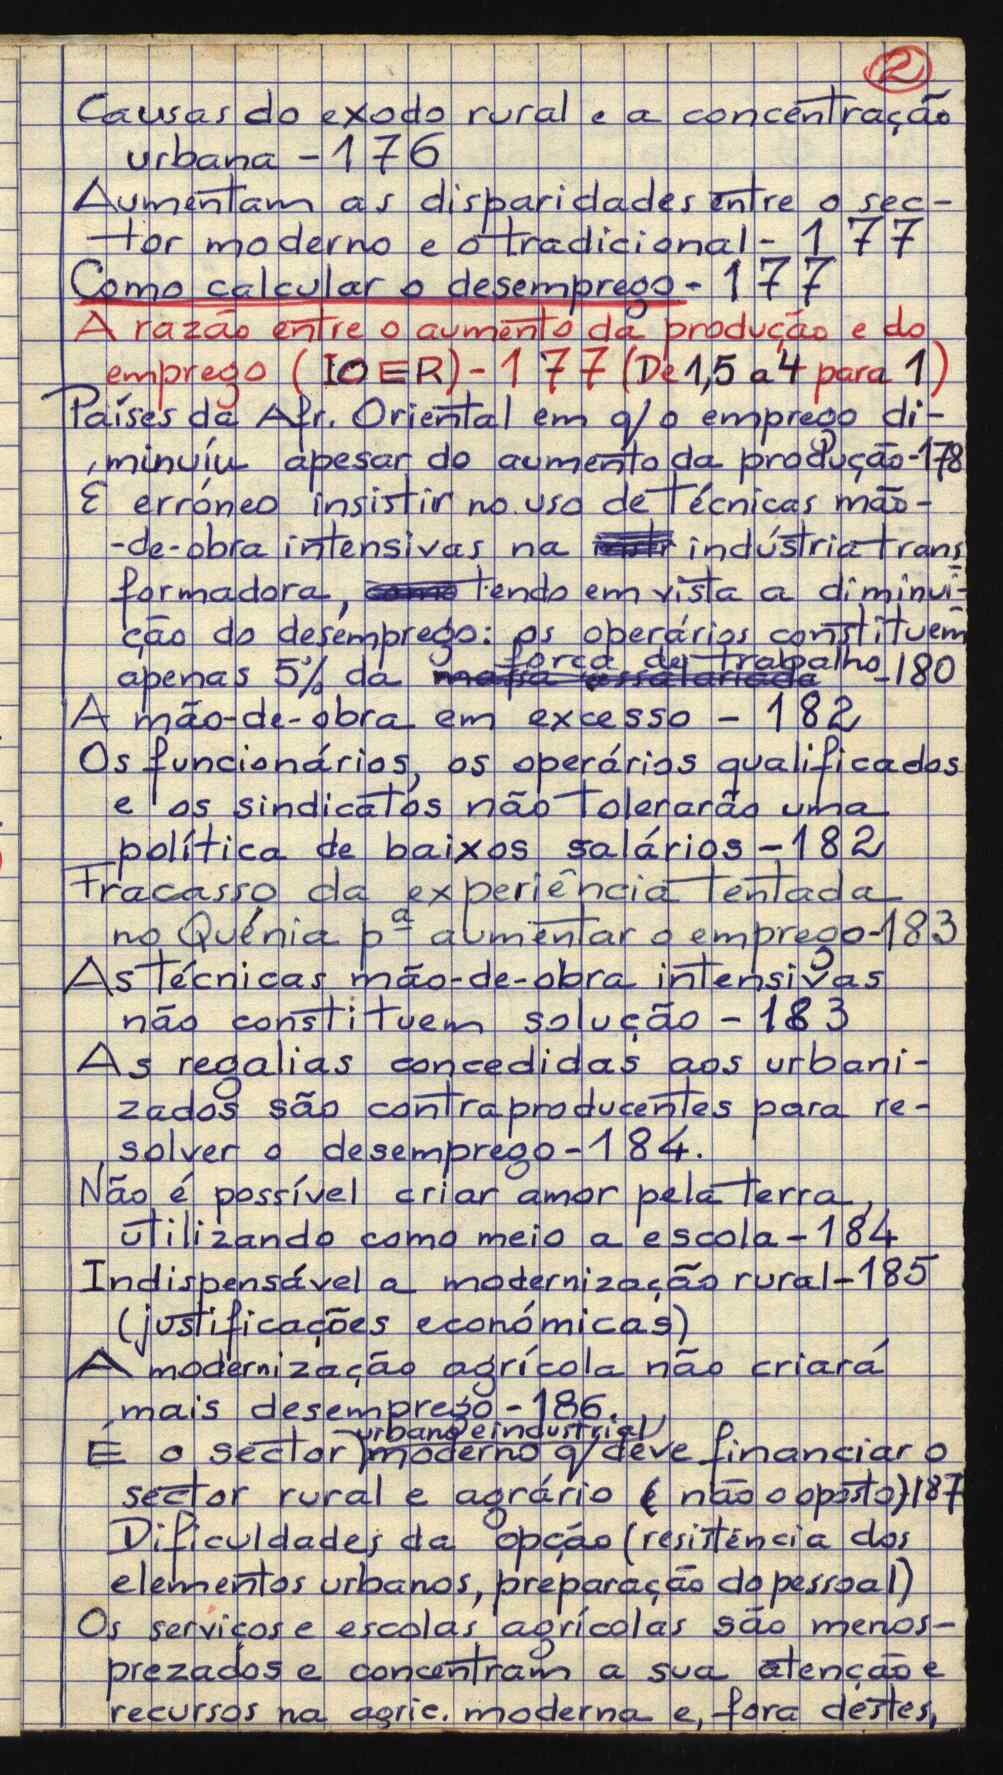 2
Causas do exodo rural e a concentração
urbana - 176
Aumentam as disparidades entre o sec-
tor moderno e o tradicional - 177
Como calcular o desemprego - 177
A razão entre o aumento da produção e do
emprego (IOER) - 177 (De 1,5 a 4 para 1)
Países da Afr. Oriental em q/ o emprego di-
minuíu apesar do aumento da produção - 178
É erróneo insistir no uso de técnicas mão-
-de-obra intensivas na indústria trans
formadora, como tendo em vista a diminui-
ção do desemprego: os operários constituem
força de trabalho
apenas 5% da massa assalariada - 180
A mão-de-obra em excesso - 182
Os funcionários, os operários qualificados
e os sindicatos não tolerarão uma
política de baixos salários - 182
Fracasso da experiência tentada
no Quénia pª aumentar o emprego - 183
As técnicas mão-de-obra intensivas
não constituem solução - 183
As regalias concedidas aos urbani-
zados são contraproducentes para re-
solver o desemprego - 184.
Não é possível criar amor pela terra,
utilizando como meio a escola - 184
Indispensável a modernização rural - 185
(justificações económicas)
A modernização agrícola não criará
mais desemprego - 186.
urbano e industrial
É o sector moderno q/ deve financiar o
sector rural e agrário (não o oposto) 187
Dificuldades da opção (resistência dos
elementos urbanos, preparação do pessoal)
Os serviços e escolas agrícolas são menos-
prezados e concentram a sua atenção e
recursos na agric. moderna e, fora destes,